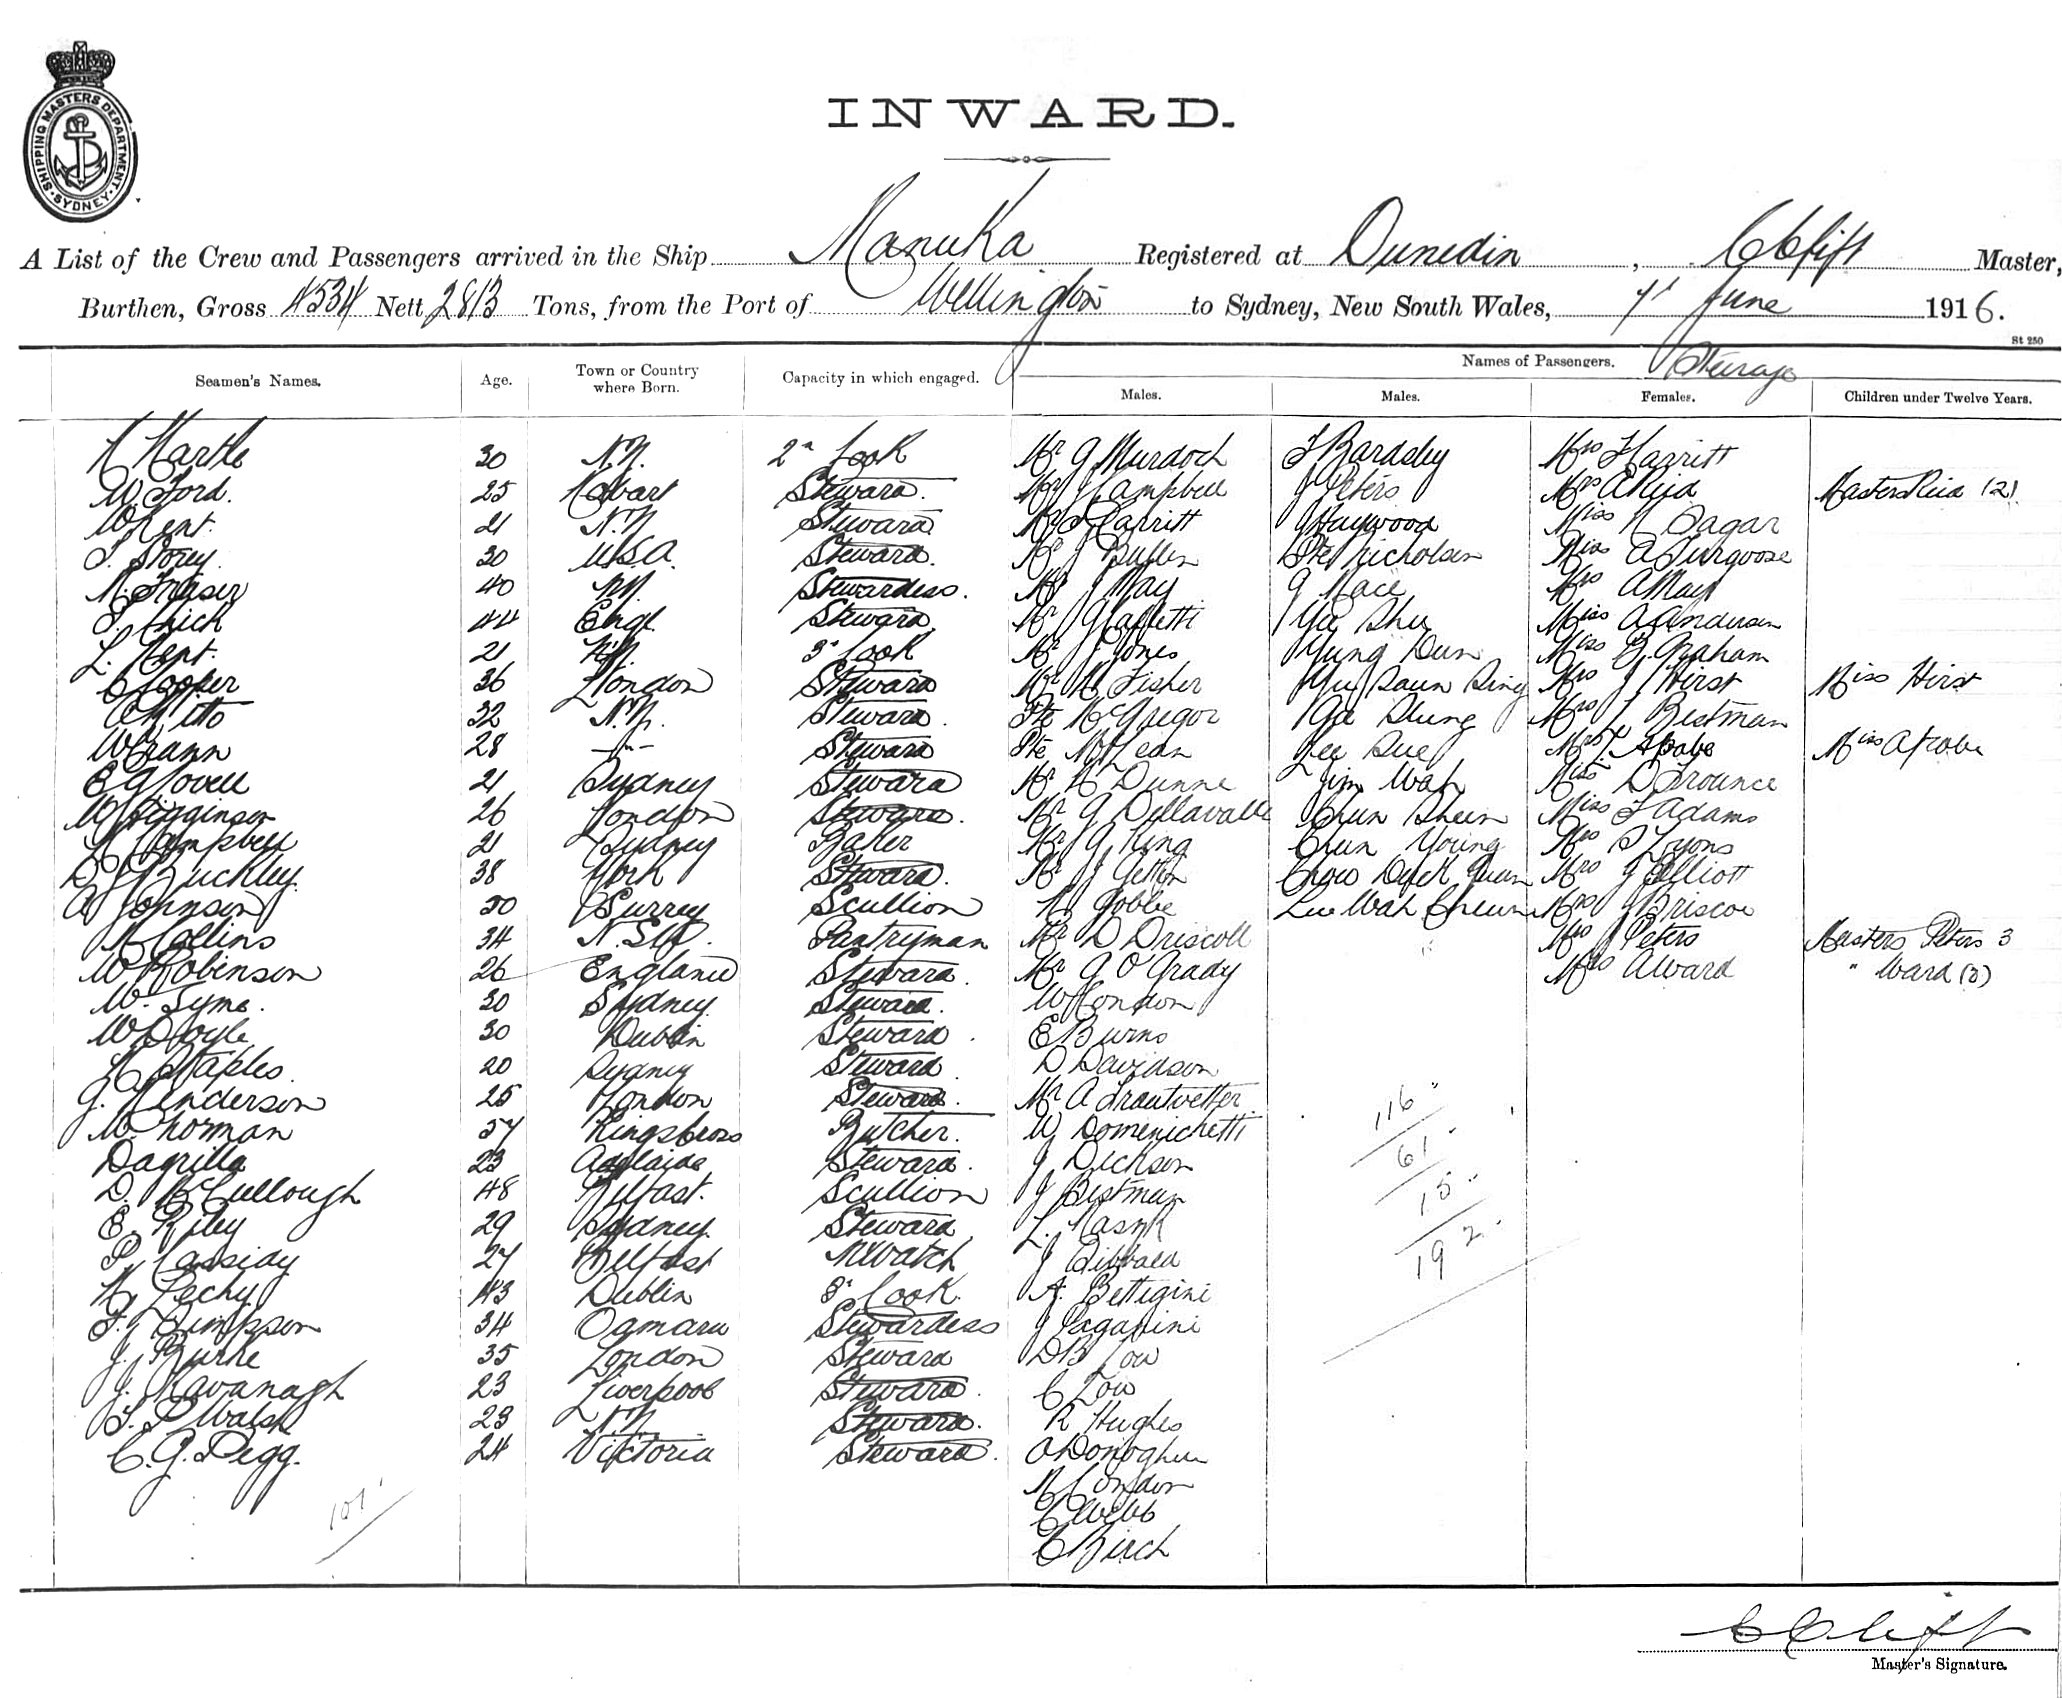 SHIPPING MASTERS DEPARTMENT
SYDNEY
INWARD.
A List of the Crew and Passengers arrived in the Ship Manuka Registered at Dunedin, C Clift Master,
Burthen, Gross 4534 Nett 2813 Tons, from the Port of Wellington to Sydney, New South Wales, June 1916.
St 250
Seamen's Names. Age. Town or Country where Born. Capacity in which engaged. Names of Passengers. Steerage
Males. Males. Females. Children under Twelve Years.
30 N.Z. 2nd Cook Mr G Murdoch F Bardsley Mrs Harritt
W. Ford. 25 Hobart Steward. Mr J Campbell J Peters Mrs A Reid Masters Reid (2)
W Kent. 21 N.Z. Steward. Mr F Harritt J Haywood Miss N Sagar
T. Storey. 30 U.S.A. Steward. Mr J Bullen Pte Nicholson Miss A Turgoose
M. Fraser 40 N.Z. Stewardess. Mr J May G Race Mrs A May
44 Engl. Steward. Mr Miss A Anderson
L. Kent. 21 N.Z. 3rd Cook Mr J Jones Yung Dun Miss B. Graham
C Cooper 36 London Steward Mr H Fisher Mrs J Hirst Miss Hirst
32 N.Z. Steward. Pte McGregor Mrs J Bestman
W Crann 28 Steward Pte McLean Lee Sue
E G Lovell 21 Sydney Steward Mr H Dunne Jim Wah D Trounce
W Higginson 26 London Steward. Mr G Dellavalle Chun Sheen Miss F Adams
Campbell 21 Sydney Baker Mr G King Chun Young Mrs S Lyons
D J Buckley. 38 York Steward. Mr J Getton Mrs J Elliott
A Johnson 50 Surrey Scullion Mrs J Briscoe
Collins 34 N.S.W. Pantryman Mr D Driscoll Mrs J Peters Masters Peters 3
W Robinson 26 England Steward Mr G O'Grady Mrs A Ward " Ward (3)
W. Syme. 30 Sydney. Steward. W London
W Doyle 30 Dublin Steward. E Burns
H Staples. 20 Sydney Steward. D Davidson
G. Henderson 25 London Steward. Mr A Trautvetter
W. Norman 57 Kings Cross Butcher. W Domenichetti
Dagrilla 23 Adelaide Steward. J Dickson
D. McCullough 48 Belfast. Scullion J Bestman
E. Riley 29 Sydney. Steward
P. Cassidy 27 Belfast N Watch J Dibbald
43 Dublin 3rd Cook. A. Bettigini
F. Simpson 34 Oamaru Stewardess J Paganini
J. Burke 35 London Steward D B Low
J. Kavanagh 23 Liverpool Steward. C Low
T. P Walsh 23 N.Z. Steward. R Hughes
C. G. Pegg. 24 Victoria Steward. O'Donoghue
H London
C Webb
C Birch
116
61
15
192
107
C Clift
Master's Signature.